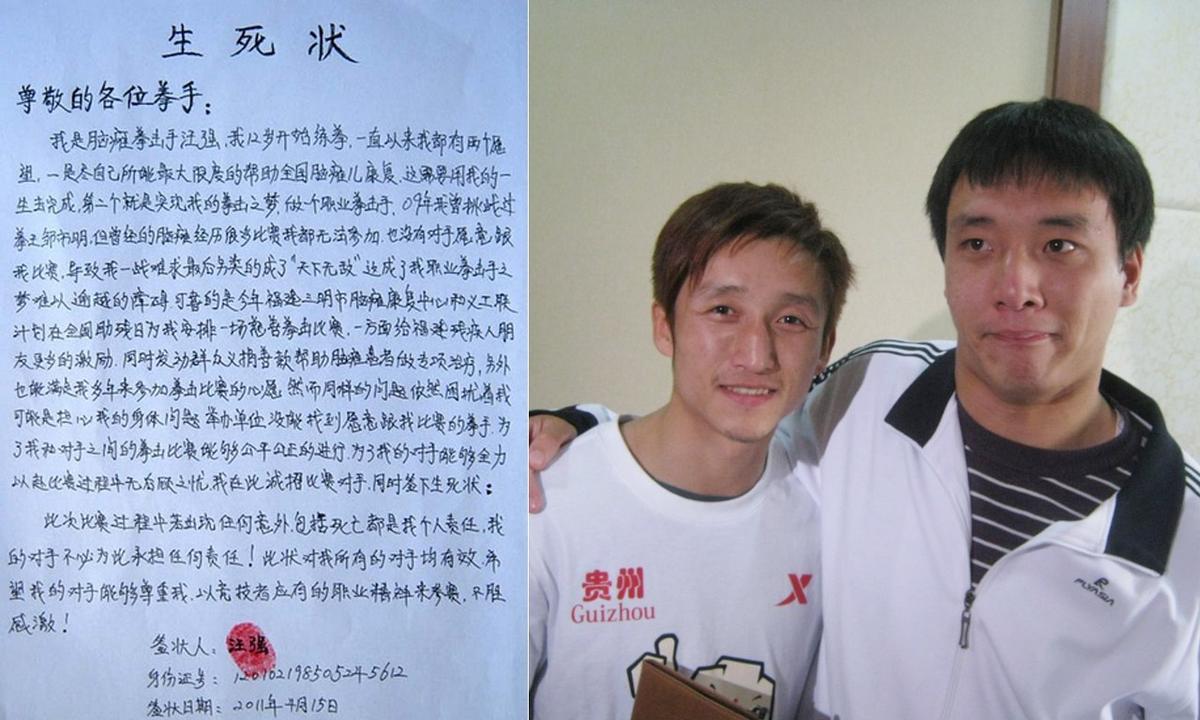 生死状
尊敬的各位拳手:
我是脑瘫拳击手汪强,我12岁开始练拳,一直以来我都有两个愿
望,一是尽自己所能最大限度的帮助全国脑瘫儿康复,这需要用我的一
生去完成,第二个就是实现我的拳击之梦,做个职业拳击手,09年我曾挑战过
拳王邹市明,但曾经的脑瘫经历很多比赛我都无法参加,也没有对手愿意跟
我比赛,导致我一战难求最后另类的成了“天下无敌”这成了我职业拳击手之
梦难以逾越的障碍可喜的是今年福建三明市脑瘫康复中心和义工联
计划在全国助残日为我安排一场慈善拳击比赛,一方面给福建残疾人朋
友更多的激励,同时发动群众义捐善款帮助脑瘫患者做专项治疗,另外
也能满足我多年来参加拳击比赛的心愿,然而同样的问题依然困扰着我
可能是担心我的身体问题举办单位没能找到愿意跟我比赛的拳手,为
了我和对手之间的拳击比赛能够公平公正的进行,为了我的对手能够全力
以赴比赛过程中无后顾之忧,我在此诚招比赛对手,同时签下生死状:
此次比赛过程中若出现任何意外包括死亡都是我个人责任,我
的对手不必为此承担任何责任!此状对我所有的对手均有效,希
望我的对手能够尊重我,以竞技者应有的职业精神来参赛,不胜
感激!
签状人:汪强
身份证号:120102198505245612
签状日期:2011年4月15日
贵州
Guizhou
FLYASIA